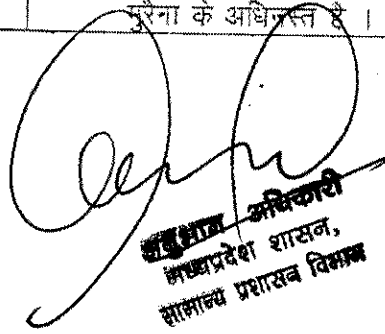 मुरैना के अधिनस्त है ।
अनुभाग अधिकारी
मध्यप्रदेश शासन,
सामान्य प्रशासन विभाग